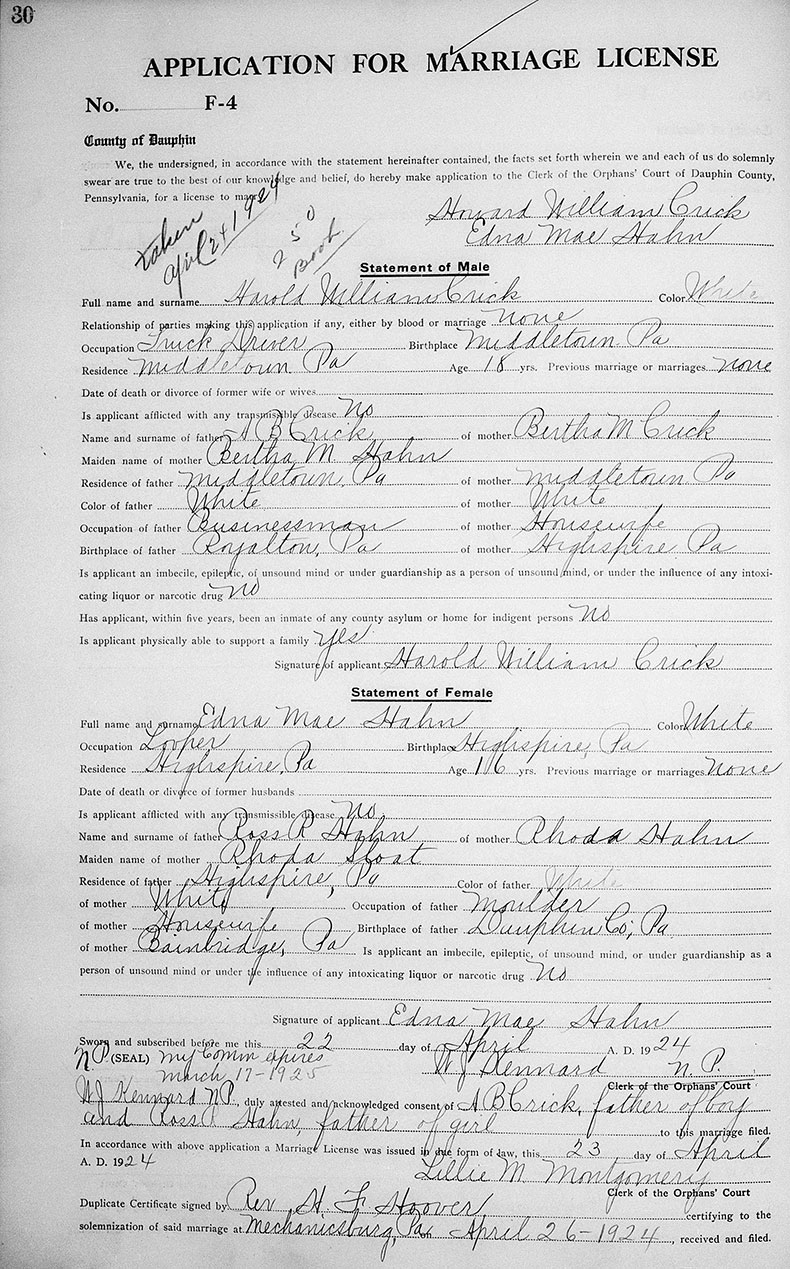 30
APPLICATION FOR MARRIAGE LICENSE
No. F-4
County of Dauphin
We, the undersigned, in accordance with the statement hereinafter contained, the facts set forth wherein we and each of us do solemnly
swear are true to the best of our knowledge and belief, do hereby make application to the Clerk of the Orphans' Court of Dauphin County,
Pennsylvania, for a license to marry
Howard William Crick
Edna Mae Hahn
taken
april 24 1924
2 50
Book
Statement of Male
Full name and surname Harold William Crick Color White
Relationship of parties making this application if any, either by blood or marriage none
Occupation Truck Driver Birthplace Middletown Pa
Residence Middletown Pa Age 18 yrs. Previous marriage or marriages none
Date of death or divorce of former wife or wives
Is applicant afflicted with any transmissible disease No
Name and surname of father A B Crick of mother Bertha M Crick
Maiden name of mother Bertha M Hahn
Residence of father Middletown, Pa of mother Middletown Pa
Color of father White of mother White
Occupation of father Businessman of mother Housewife
Birthplace of father Royalton, Pa of mother Highspire Pa
Is applicant an imbecile, epileptic, of unsound mind or under guardianship as a person of unsound mind, or under the influence of any intoxi-
cating liquor or narcotic drug no
Has applicant, within five years, been an inmate of any county asylum or home for indigent persons no
Is applicant physically able to support a family yes
Signature of applicant Harold William Crick
Statement of Female
Full name and surname Edna Mae Hahn Color White
Occupation Looper Birthplace Highspire, Pa
Residence Highspire, Pa Age 16 yrs. Previous marriage or marriages none
Date of death or divorce of former husbands
Is applicant afflicted with any transmissible disease No
Name and surname of father Ross R Hahn of mother Rhoda Hahn
Maiden name of mother Rhoda Sloat
Residence of father Highspire, Pa Color of father White
of mother White Occupation of father Moulder
of mother Housewife Birthplace of father Dauphin Co; Pa
of mother Bainbridge, Pa Is applicant an imbecile, epileptic, of unsound mind, or under guardianship as a
person of unsound mind or under the influence of any intoxicating liquor or narcotic drug No
Signature of applicant Edna Mae Hahn
Sworn and subscribed before me this 22 day of April A. D. 1924
N.P. (SEAL) my Comm expires W J Kennard N. P.
march 17-1925
Clerk of the Orphans' Court
W J Kennard N P, duly attested and acknowledged consent of A B Crick, father of boy
and Ross R Hahn, father of girl to this marriage filed.
In accordance with above application a Marriage License was issued in due form of law, this 23 day of April
A. D. 1924 Lillie M Montgomery
Clerk of the Orphans' Court
Duplicate Certificate signed by Rev H. F Hoover certifying to the
solemnization of said marriage at Mechanicsburg, Pa on April 26-1924, received and filed.